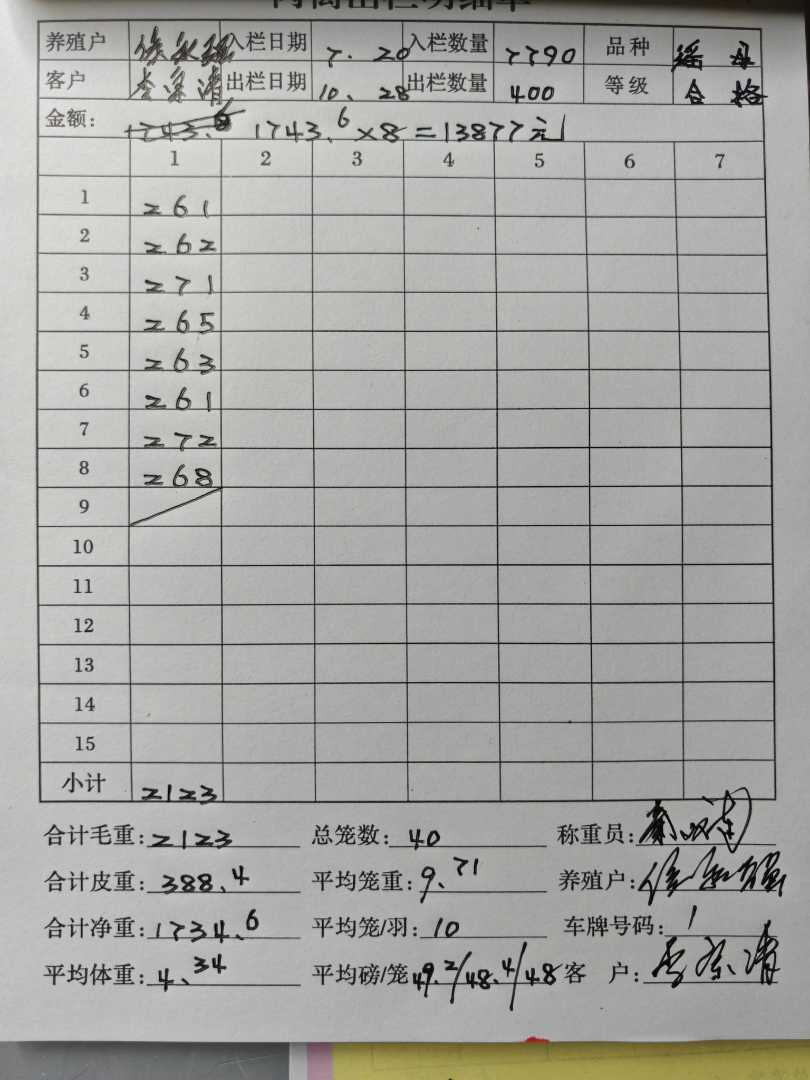 肉禽出栏明细单
养殖户 入栏日期 7.20 入栏数量 7790 品种 瑶母
客户 李宗清 出栏日期 10.28 出栏数量 400 等级 合格
金额: 1743.6×8=13877元
1 2 3 4 5 6 7
1 261
2 262
3 271
4 265
5 263
6 261
7 272
8 268
9
10
11
12
13
14
15
小计 2123
合计毛重: 2123 总笼数: 40 称重员:
合计皮重: 388.4 平均笼重: 9.71 养殖户:
合计净重: 1734.6 平均笼/羽: 10 车牌号码: 1
平均体重: 4.34 平均磅/笼 49.2/48.4/48 客 户: 李宗清